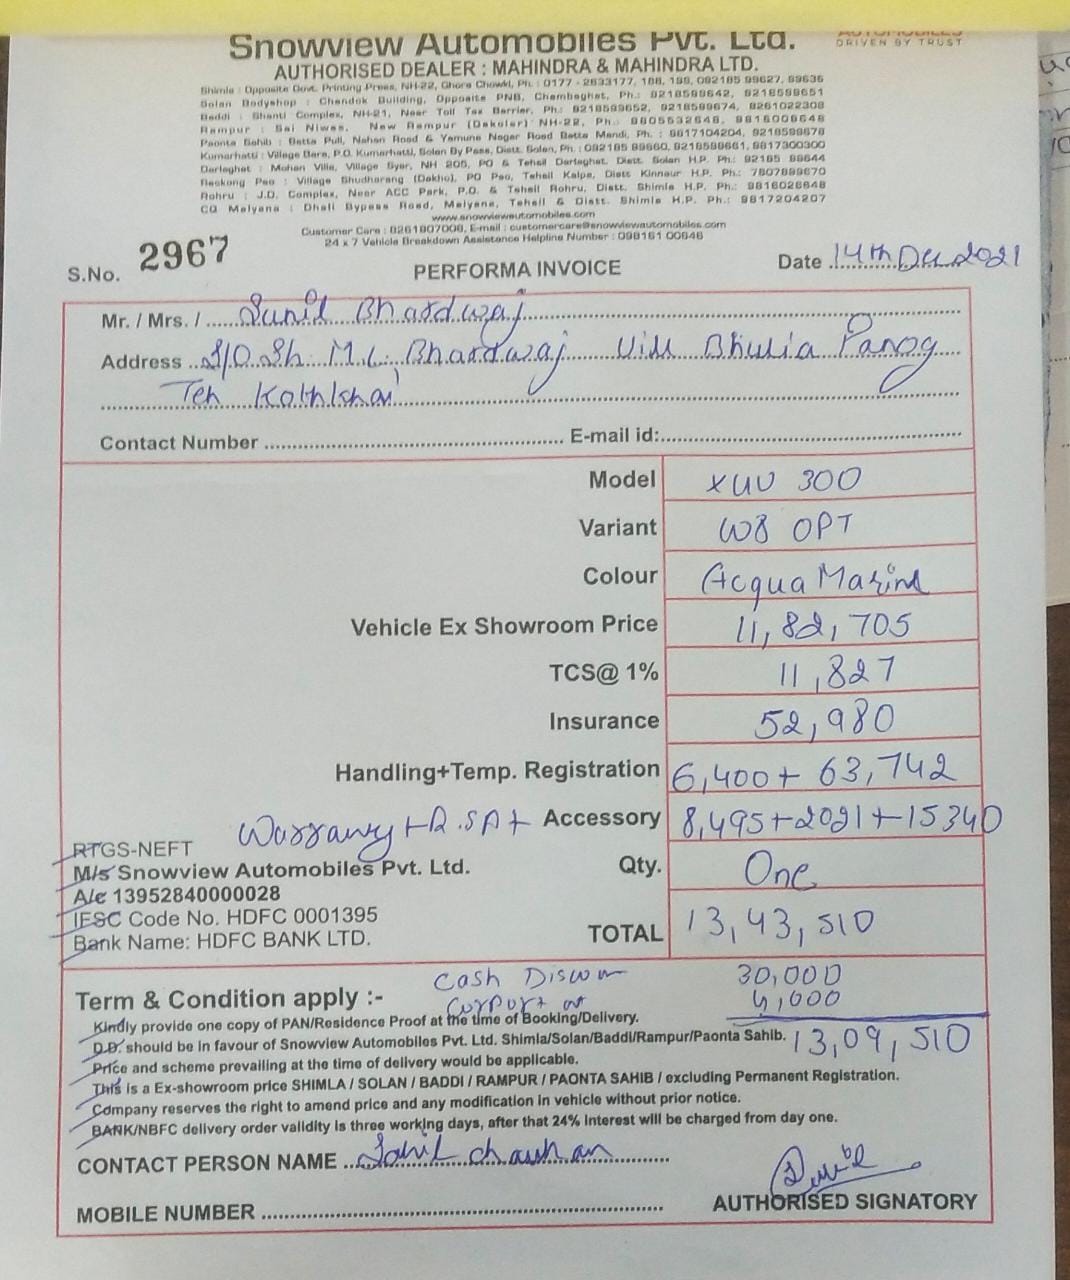 Snowview Automobiles Pvt. Ltd.
AUTOMOBILES
DRIVEN BY TRUST
AUTHORISED DEALER : MAHINDRA & MAHINDRA LTD.
Shimla : Opposite Govt. Printing Press, NH-22, Ghora Chowki, Ph. : 0177 - 2633177, 188, 199, 092185 99627, 99636
Solan Bodyshop : Chandok Building, Opposite PNB, Chambaghat, Ph.: 9218599642, 9218599651
Baddi : Shanti Complex, NH-21, Near Toll Tax Barrier, Ph.: 9218599652, 9218599674, 9261022308
Rampur : Sai Niwas, New Rampur (Dakolar) NH-22, Ph. 9805532648, 9816009648
Paonta Sahib : Batta Pull, Nahan Road & Yamuna Nagar Road Batta Mandi, Ph. : 9817104204, 9218599678
Kumarhatti : Village Bara, P.O. Kumarhatti, Solan By Pass, Distt. Solan, Ph. : 092185 99660, 9218599661, 9817300300
Darlaghat : Mohan Villa, Village Syar, NH 205, PO & Tehsil Darlaghat, Distt. Solan H.P. Ph.: 92185 99644
Reckong Peo : Village Shudharang (Dakho), PO Peo, Tehsil Kalpa, Distt Kinnaur H.P. Ph.: 7807899670
Rohru : J.D. Complex, Near ACC Park, P.O. & Tehsil Rohru, Distt. Shimla H.P. Ph.: 9816026648
CQ Malyana : Dhali Bypass Road, Malyana, Tehsil & Distt. Shimla H.P. Ph.: 9817204207
www.snowviewautomobiles.com
Customer Care : 8261807008, E-mail : customercare@snowviewautomobiles.com
24 x 7 Vehicle Breakdown Assistance Helpline Number : 098161 00648
S.No. 2967
PERFORMA INVOICE
Date 14th Dec 2021
Mr. / Mrs. / Sunil Bhardwaj
Address S/O Sh. M.L. Bhardwaj Vill Panog
Teh Kotkhai
Contact Number E-mail id:
Model XUV 300
Variant W8 OPT
Colour Acqua Marine
Vehicle Ex Showroom Price 11,82,705
TCS@ 1% 11,827
Insurance 52,980
Handling+Temp. Registration 6,400+ 63,742
Warranty + R.SA + Accessory 8,495+2021+15340
RTGS-NEFT
M/s Snowview Automobiles Pvt. Ltd.
A/c 13952840000028
IFSC Code No. HDFC 0001395
Bank Name: HDFC BANK LTD.
Qty. One
TOTAL 13,43,510
Cash Discou 30,000
4,000
13,09,510
Term & Condition apply :-
Kindly provide one copy of PAN/Residence Proof at the time of Booking/Delivery.
D.D. should be in favour of Snowview Automobiles Pvt. Ltd. Shimla/Solan/Baddi/Rampur/Paonta Sahib.
Price and scheme prevailing at the time of delivery would be applicable.
This is a Ex-showroom price SHIMLA / SOLAN / BADDI / RAMPUR / PAONTA SAHIB / excluding Permanent Registration.
Company reserves the right to amend price and any modification in vehicle without prior notice.
BANK/NBFC delivery order validity is three working days, after that 24% Interest will be charged from day one.
CONTACT PERSON NAME Sahil Chauhan
MOBILE NUMBER
AUTHORISED SIGNATORY